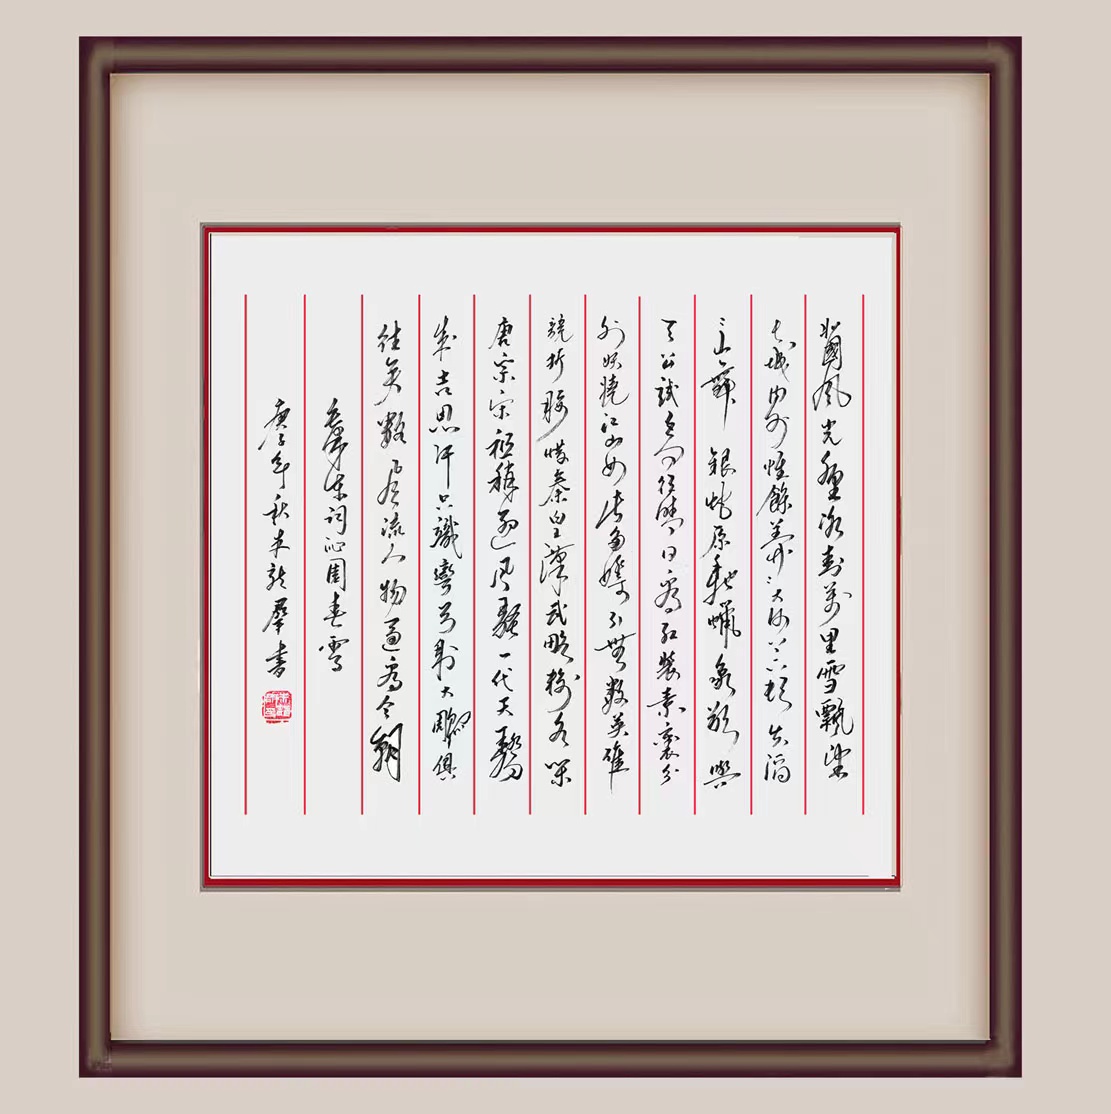 北國風光千里冰封萬里雪飄望
長城內外惟餘莽々大河上下頓失滔
々山舞銀蛇原馳蠟象欲與
天公試比高須晴日看紅裝素裹分
外妖嬈江山如此多嬌引無數英雄
競折腰惜秦皇漢武略輸文采
唐宗宋祖稍遜風騷一代天驕
成吉思汗只識彎弓射大雕俱
往矣數風流人物還看今朝
毛澤東詞沁園春雪
庚子年秋朱龍群書